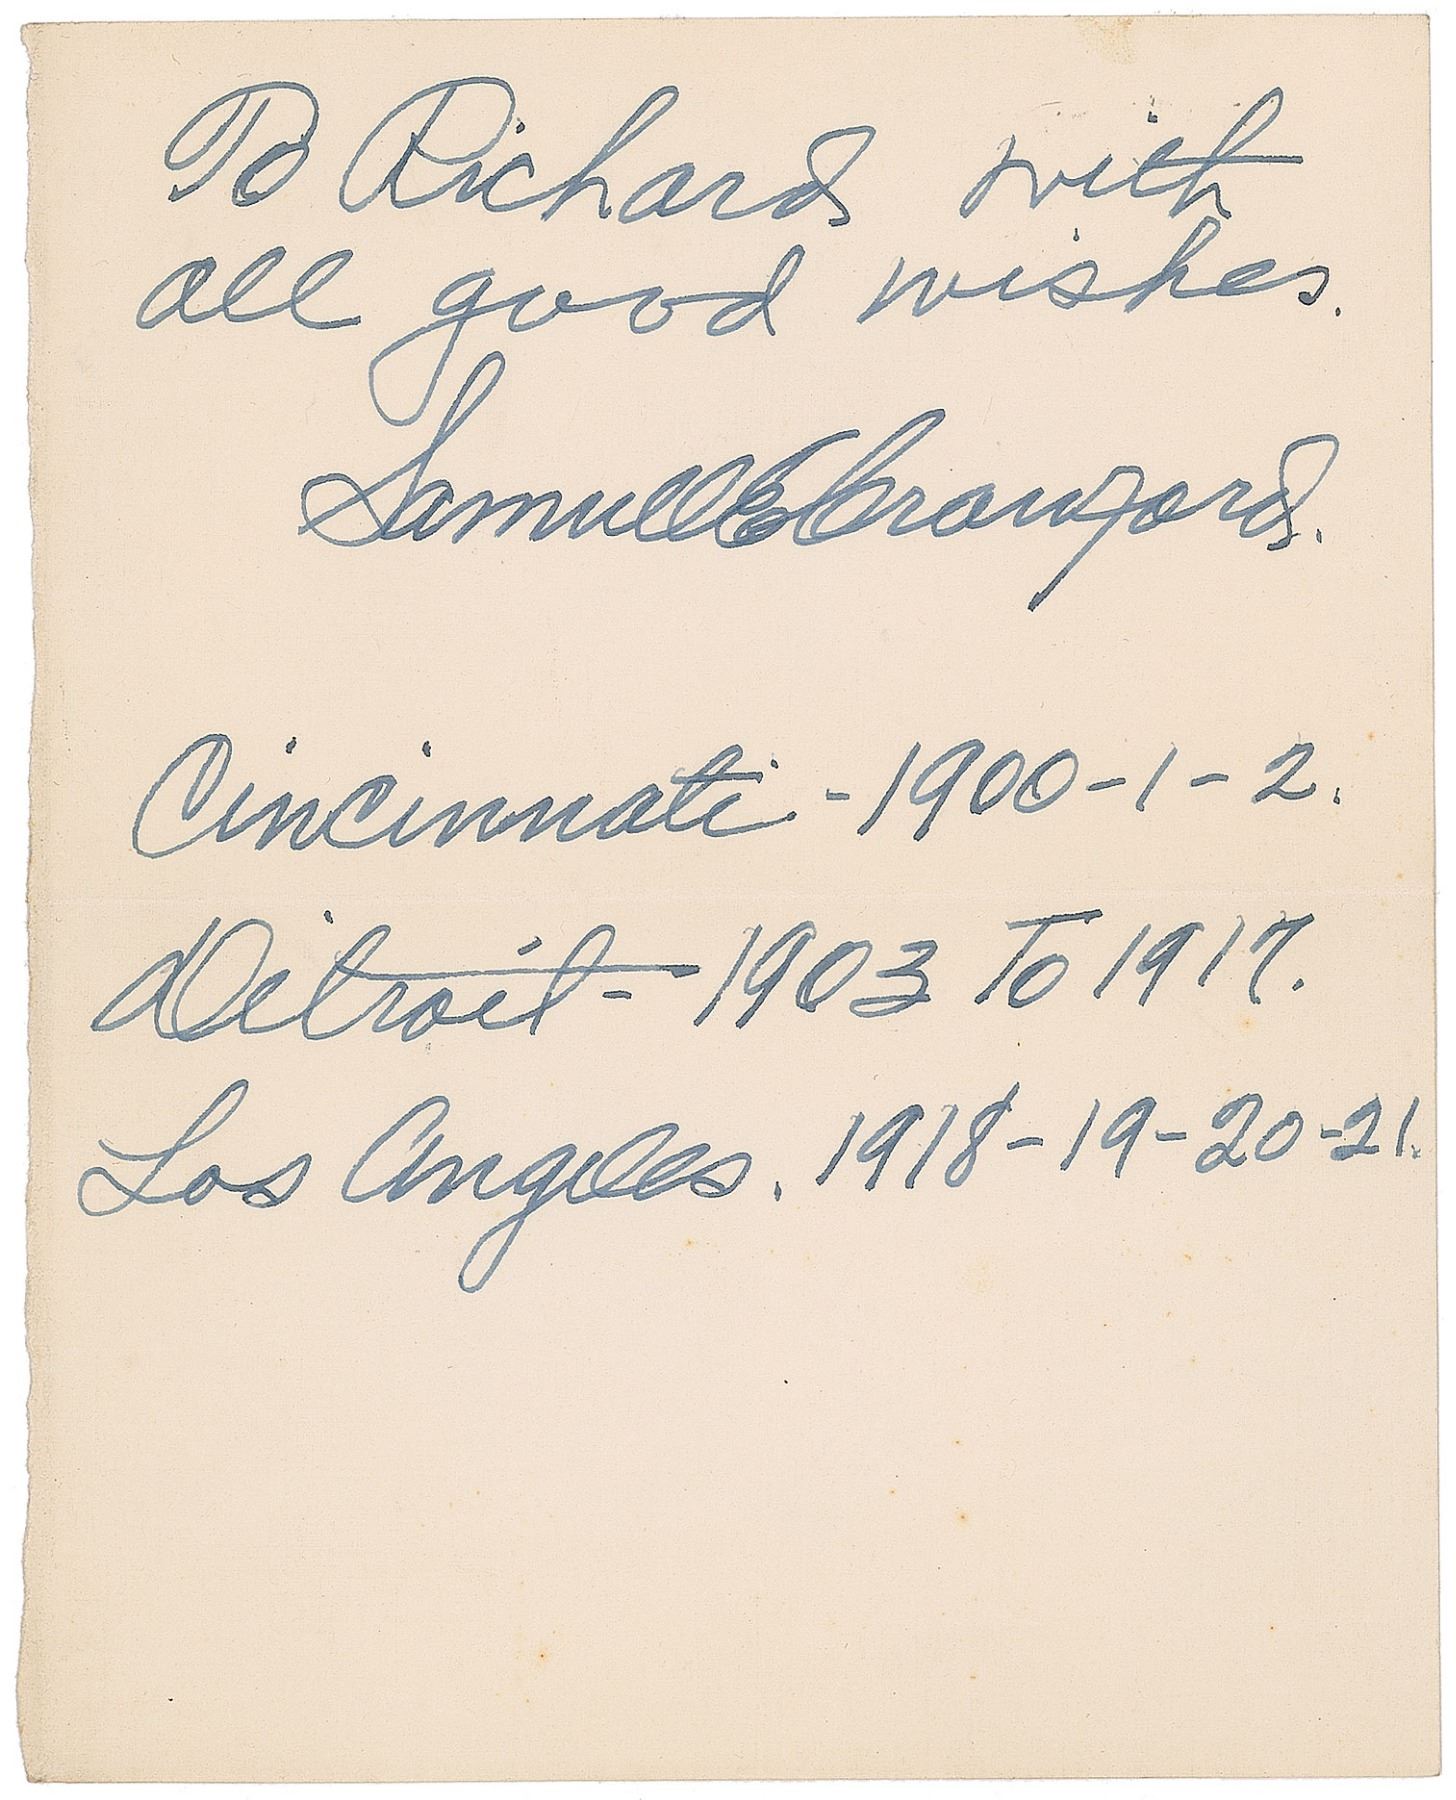 To Richard with
all good wishes.
Samuel E Crawford.
Cincinnati. - 1900 - 1 - 2.
Detroit - 1903 To 1917.
Los Angeles. 1918 - 19 - 20 - 21.